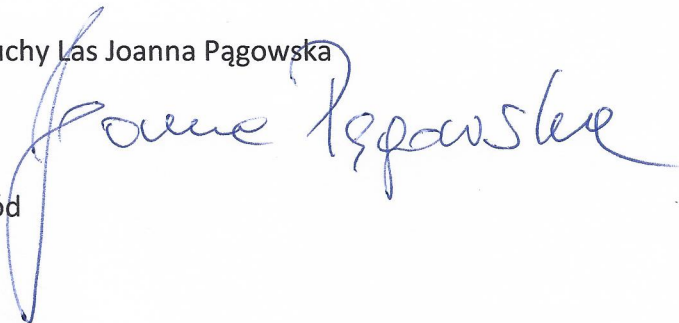 uchy Las Joanna Pągowska
Joanna Pągowska
ód